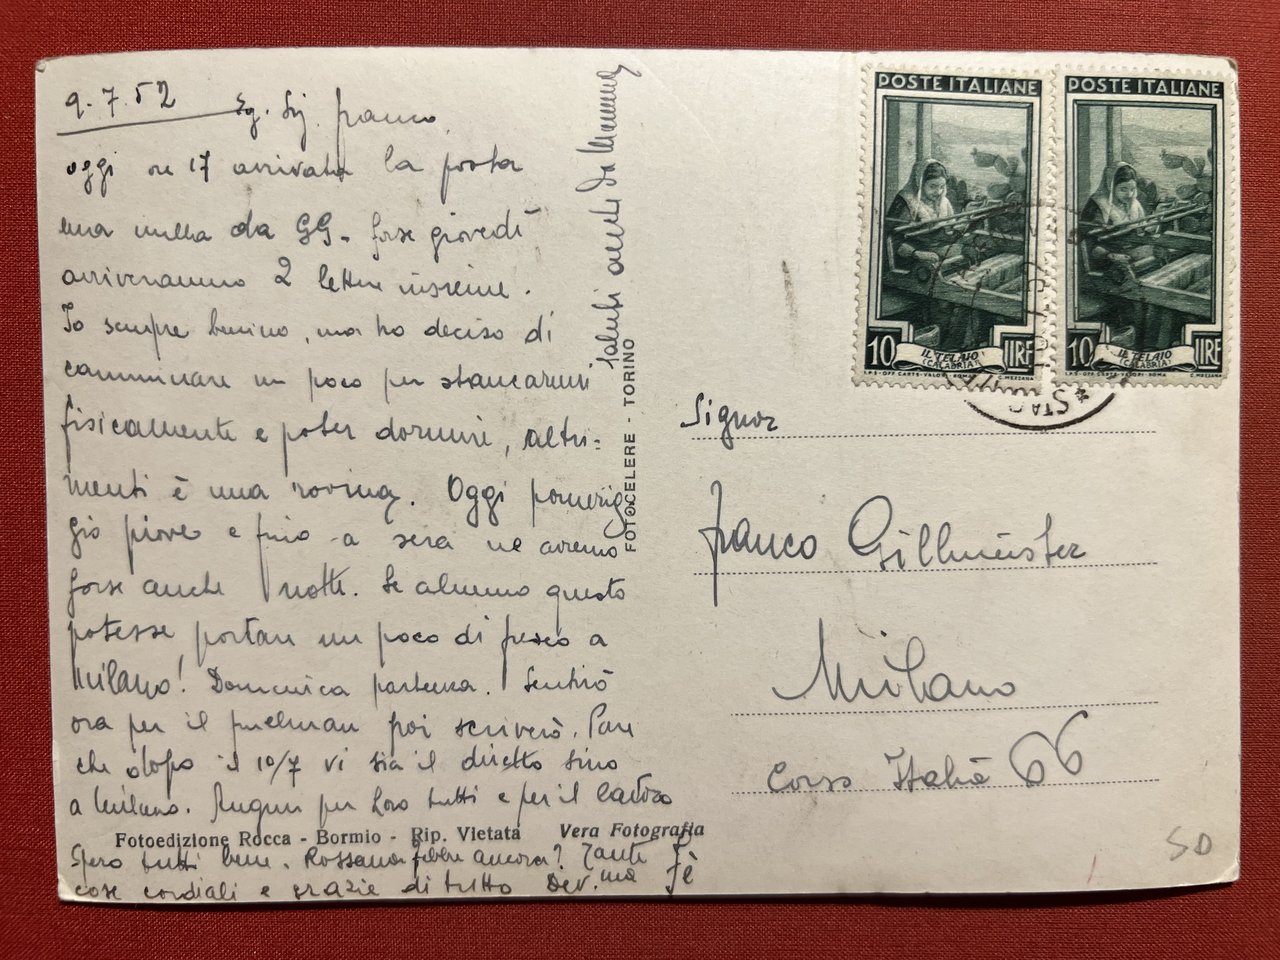 9.7.52 Sg. Sig. Franco,
oggi ore 17 arrivata la posta
ma nulla da GG. Forse giovedì
arriveranno 2 lettere insieme.
Io sempre benino, ma ho deciso di
camminare un poco per stancarmi
fisicamente e poter dormire, altri=
menti è una rovina. Oggi pomerig=
gio piove e fino a sera ne avremo
forse anche notte. Se almeno questo
potesse portare un poco di fresco a
Milano! Domenica partenza. Sentirò
ora per il pullman poi scriverò. Pare
che dopo il 10/7 vi sia il diretto sino
a Milano. Auguri per Loro tutti e per il lavoro
Fotoedizione Rocca - Bormio - Rip. Vietata Vera Fotografia
Spero tutti bene. Rossana febbre ancora? Tante
cose cordiali e grazie di tutto Dev.ma Fè
Saluti anche da
FOTOCELERE - TORINO
POSTE ITALIANE
10 LIRE
IL TELAIO
(CALABRIA)
I.P.S. - OFF. CARTE - VALORI - ROMA C. MEZZANA
POSTE ITALIANE
10 LIRE
IL TELAIO
(CALABRIA)
I.P.S. - OFF. CARTE - VALORI - ROMA C. MEZZANA
Signor
Franco Gillmeister
Milano
Corso Italia 66
SD